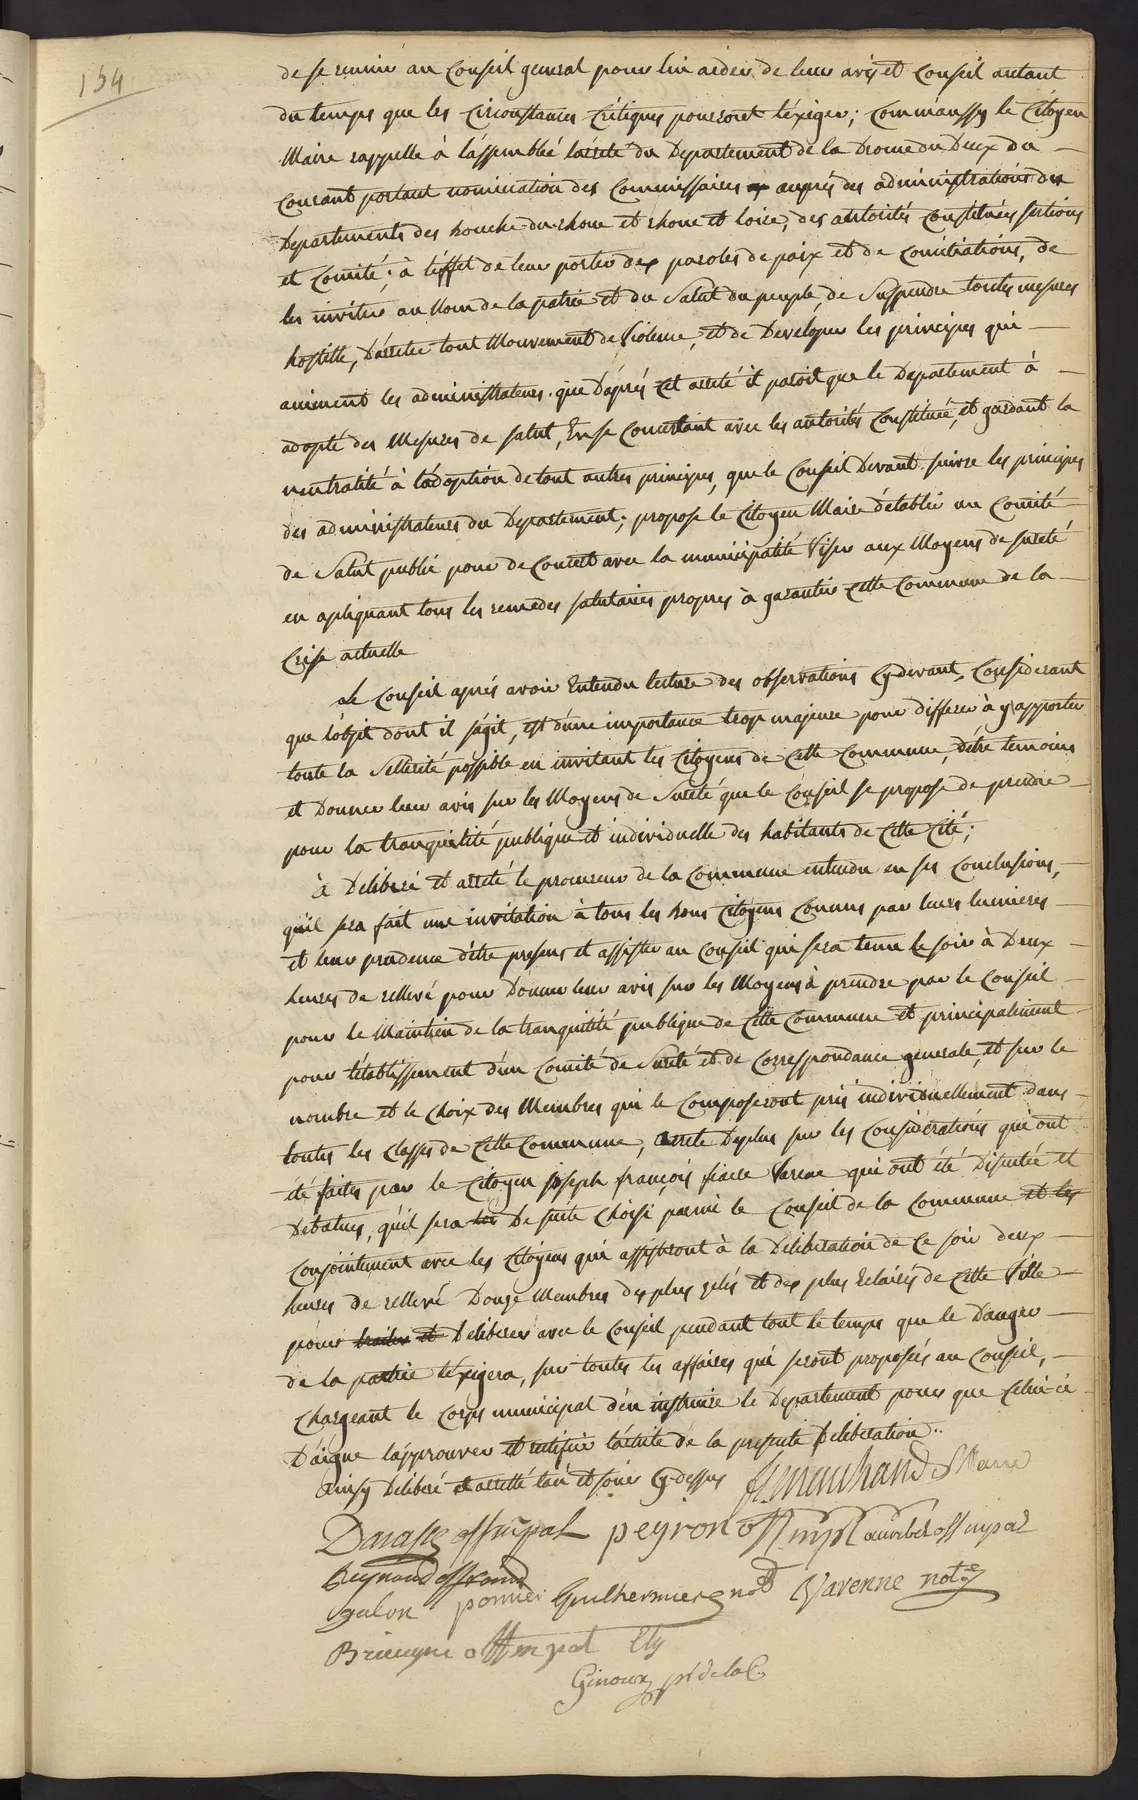 134
de se reunir au Conseil general pour lui aider de leur avis et Conseil autant
du temps que les Circonstances Critiques pourront l'éxiger; Comm'aussy le Citoyen
Maire rappelle à l'assemblée l'arreté du Departement de la Drome du Deux du
Courant portant nomination des Commissaires auprés des administrations des
Departements des bouche du rhone et rhone et loire, des autorités Constituées sections
et Comité; à l'éffet de leur porter des paroles de paix et de Conciliations, de
les inviter au Nom de la patrie et du Salut du peuple, de Suspendre toutes mesures
hostille, D'arreter tout Mouvement de Violence, et de Developer les principes qui
animent les administrateurs. que D'aprés cet arreté il paroit que le Departement à
adopté des Mesures de salut, En se Concertant avec les autorités Constituée, et gardant la
neutralité à l'adoption de tout autres principes, que le Conseil Devant suivre les principes
des administrateurs du Departement; propose le Citoyen Maire d'établir un Comité
de Salut public pour de Concert avec la municipalité Viser aux Moyens de sureté
en apliquant tous les remedes salutaires propres à garantir cette Commune de la
Crise actuelle
Le Conseil aprés avoir Entendu lecture des observations Cy devant, Considerant
que l'objet dont il s'agit, est d'une importance trop majeure pour differer à y apporter
toute la Sellerité possible en invitant les Citoyens de Cette Commune, d'être temoins
et Donner leur avis sur les Moyens de Sureté que le Conseil se propose de prendre
pour la tranquilité publique et individuelle des habitants de Cette Cité;
à Deliberé et arreté le procureur de la Commune entendu en ses Conclusions,
qu'il sera fait une invitation à tous les bons Citoyens Connus par leurs lumieres
et leur prudence d'être presens et assister au Conseil qui sera tenu le soir à Deux
heures de rellevé pour Donner leur avis sur les Moyens à prendre par le Conseil
pour le Maintien de la tranquilité publique de Cette Commune et principalement
pour l'établissement d'un Comité de Sureté et de Correspondance generale, et sur le
nombre et le Choix des Membres qui le Composeront pris individuellement dans
toutes les Classes de Cette Commune, arrete Deplus sur les Considerations qui ont
été faites par le Citoyen joseph françois Varene qui ont été Discutée et
Debatues, qu'il sera De suite Choisi parmi le Conseil de la Commune et les
Conjointement avec les Citoyens qui assisteront à la Deliberation de Ce soir deux
heures de rellevé Douze Membres des plus zelés et des plus Eclairés de Cette Ville
pour traiter et Deliberer avec le Conseil pendant tout le temps que le Danger
de la patrie l'éxigera, sur toutes les affaires qui seront proposées au Conseil,
Chargeant le Corps municipal d'én instruire le Departement pour que Celui-ci
Daigne l'approuver et ratifier de la presente Deliberation..
Ainsy Deliberé et arretté l'an et jour Cy-dessus Marchand Maire
offmpal peyron off mpl off mpal
Reynaud
Salon ponnier Guilhermier not Varenne notble
offmpal Ely
Giroux pr de la C.